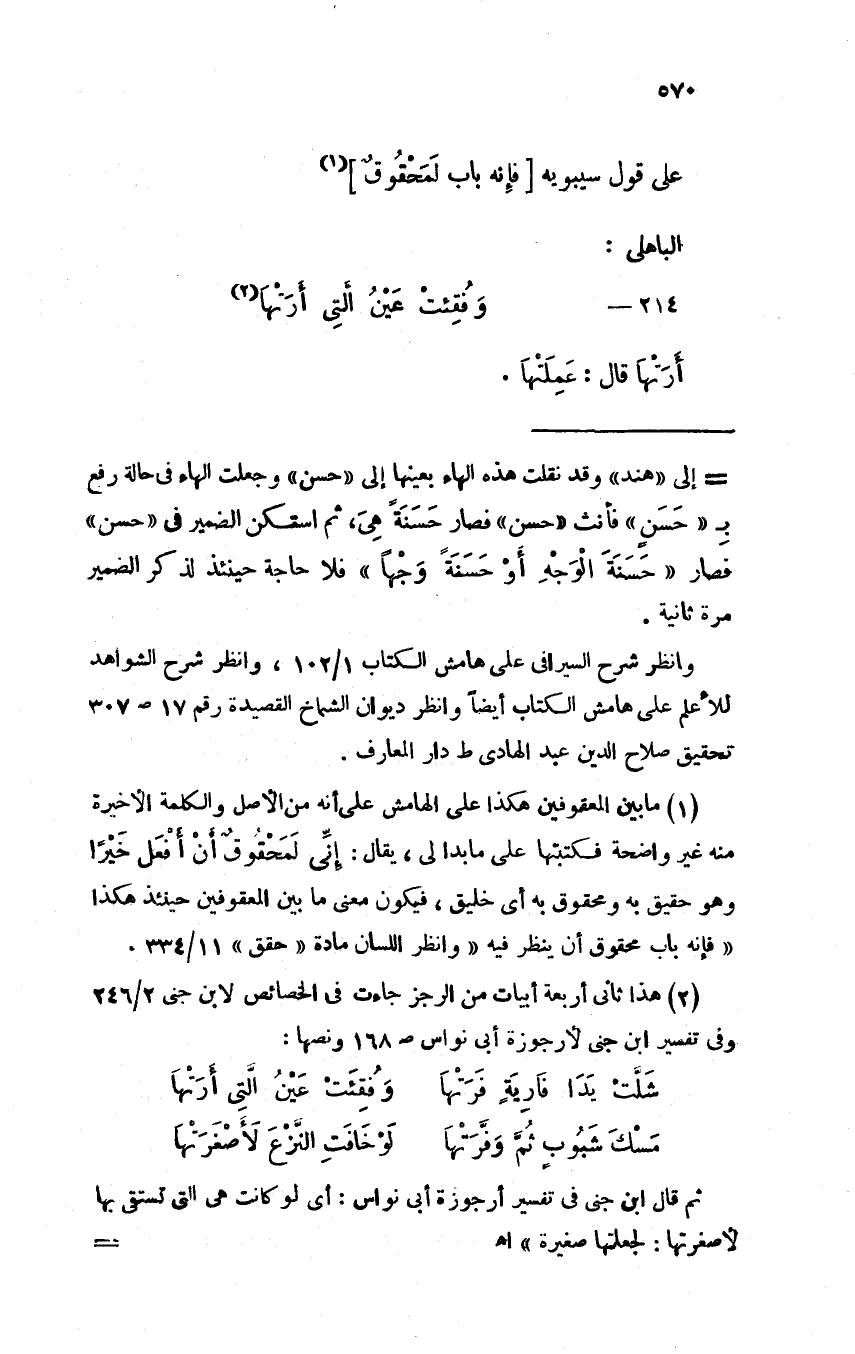 ٥٧٠
على قول سيبويه [ فإنه باب لَمَحْقُوقٌ ](١)
الباهلى :
٢١٤ — وَفُقِئتْ عَيْنُ الَّتِى أَرَتْهَا(٢)
أَرَتْهَا قال : عَمِلَتْهَا .
= إلى «هند» وقد نقلت هذه الهاء بعينها إلى «حسن» وجعلت الهاء فى حالة رفع
بـ « حَسَنٍ » فأنث «حسن» فصار حَسَنَةً هِىَ، ثم استكن الضمير فى «حسن»
فصار « حَسَنَةَ الْوَجْهِ أَوْ حَسَنَةً وَجْهاً » فلا حاجة حينئذ لذكر الضمير
مرة ثانية .
وانظر شرح السيرافى على هامش الكتاب ١٠٢/١ ، وانظر شرح الشواهد
للأعلم على هامش الكتاب أيضاً وانظر ديوان الشماخ القصيدة رقم ١٧ ص ٣٠٧
تحقيق صلاح الدين عبد الهادى ط دار المعارف .
(١) مابين المعقوفين هكذا على الهامش على أنه من الأصل والكلمة الأخيرة
منه غير واضحة فكتبتها على مابدا لى ، يقال : إِنِّى لَمَحْقُوقٌ أَنْ أَفْعَل خَيْرًا
وهو حقيق به ومحقوق به أى خليق ، فيكون معنى ما بين المعقوفين حينئذ هكذا
« فإنه باب محقوق أن ينظر فيه « وانظر اللسان مادة « حقق » ٣٣٤/١١ .
(٢) هذا ثانى أربعة أبيات من الرجز جاءت فى الخصائص لابن جنى ٢٤٦/٢
وفى تفسير ابن جنى لأرجوزة أبى نواس ص ١٦٨ ونصها :
شَلَّتْ يَدَا فَارِيَةٍ فَرَتْهَا وَفُقِئَتْ عَيْنُ الَّتِى أَرَتْهَا
مَسْكَ شَبُوبٍ ثُمَّ وَفَّرَتْهَا لَوْ خَافَتِ النَّزْعَ لَأَصْغَرَتْهَا
ثم قال ابن جنى فى تفسير أرجوزة أبى نواس : أى لو كانت هى التى تستقى بها
لأصغرتها : لجعلتها صغيرة » اهـ =